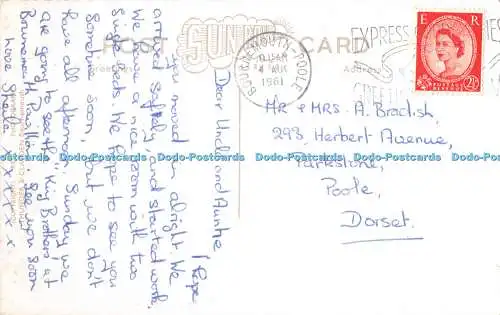 POST
SUNNY
CARD
BOURNEMOUTH-POOLE
4 AUG
1961
EXPRESS
E R
2½D
Dear Uncle and Auntie
I hope
you moved in alright. We
arrived safely, and started work.
We have a nice room with two
single beds. We hope to see you
Sometime soon, but we don't
have all afternoon. Sunday we
are going to see the "King Brothers at
Bournemouth Pavilion. See you soon
love Sheila x x x x x x
Mr & MRS. A. Bradish,
298, Herbert Avenue,
Parkstone,
Poole,
Dorset.
Dodo-Postcards Dodo-Postcards Dodo-Postcards Dodo-Postcards Dodo-Postcards